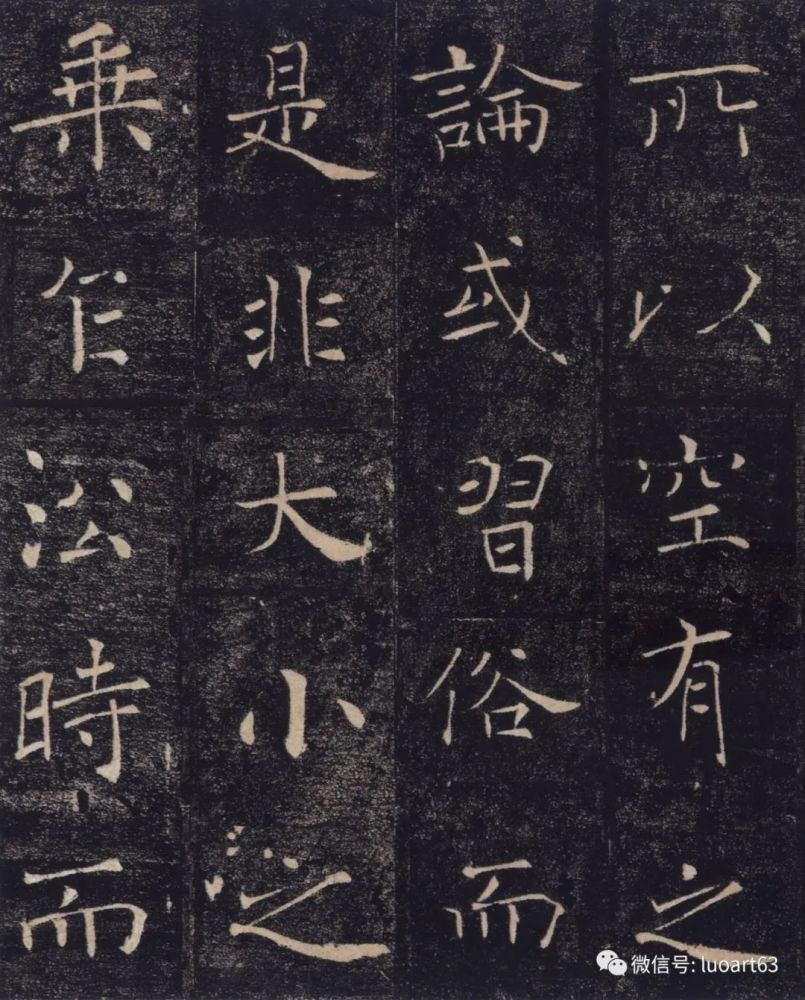 所以空有之
論或習俗而
是非大小之
乗乍㳂時而
微信号: luoart63